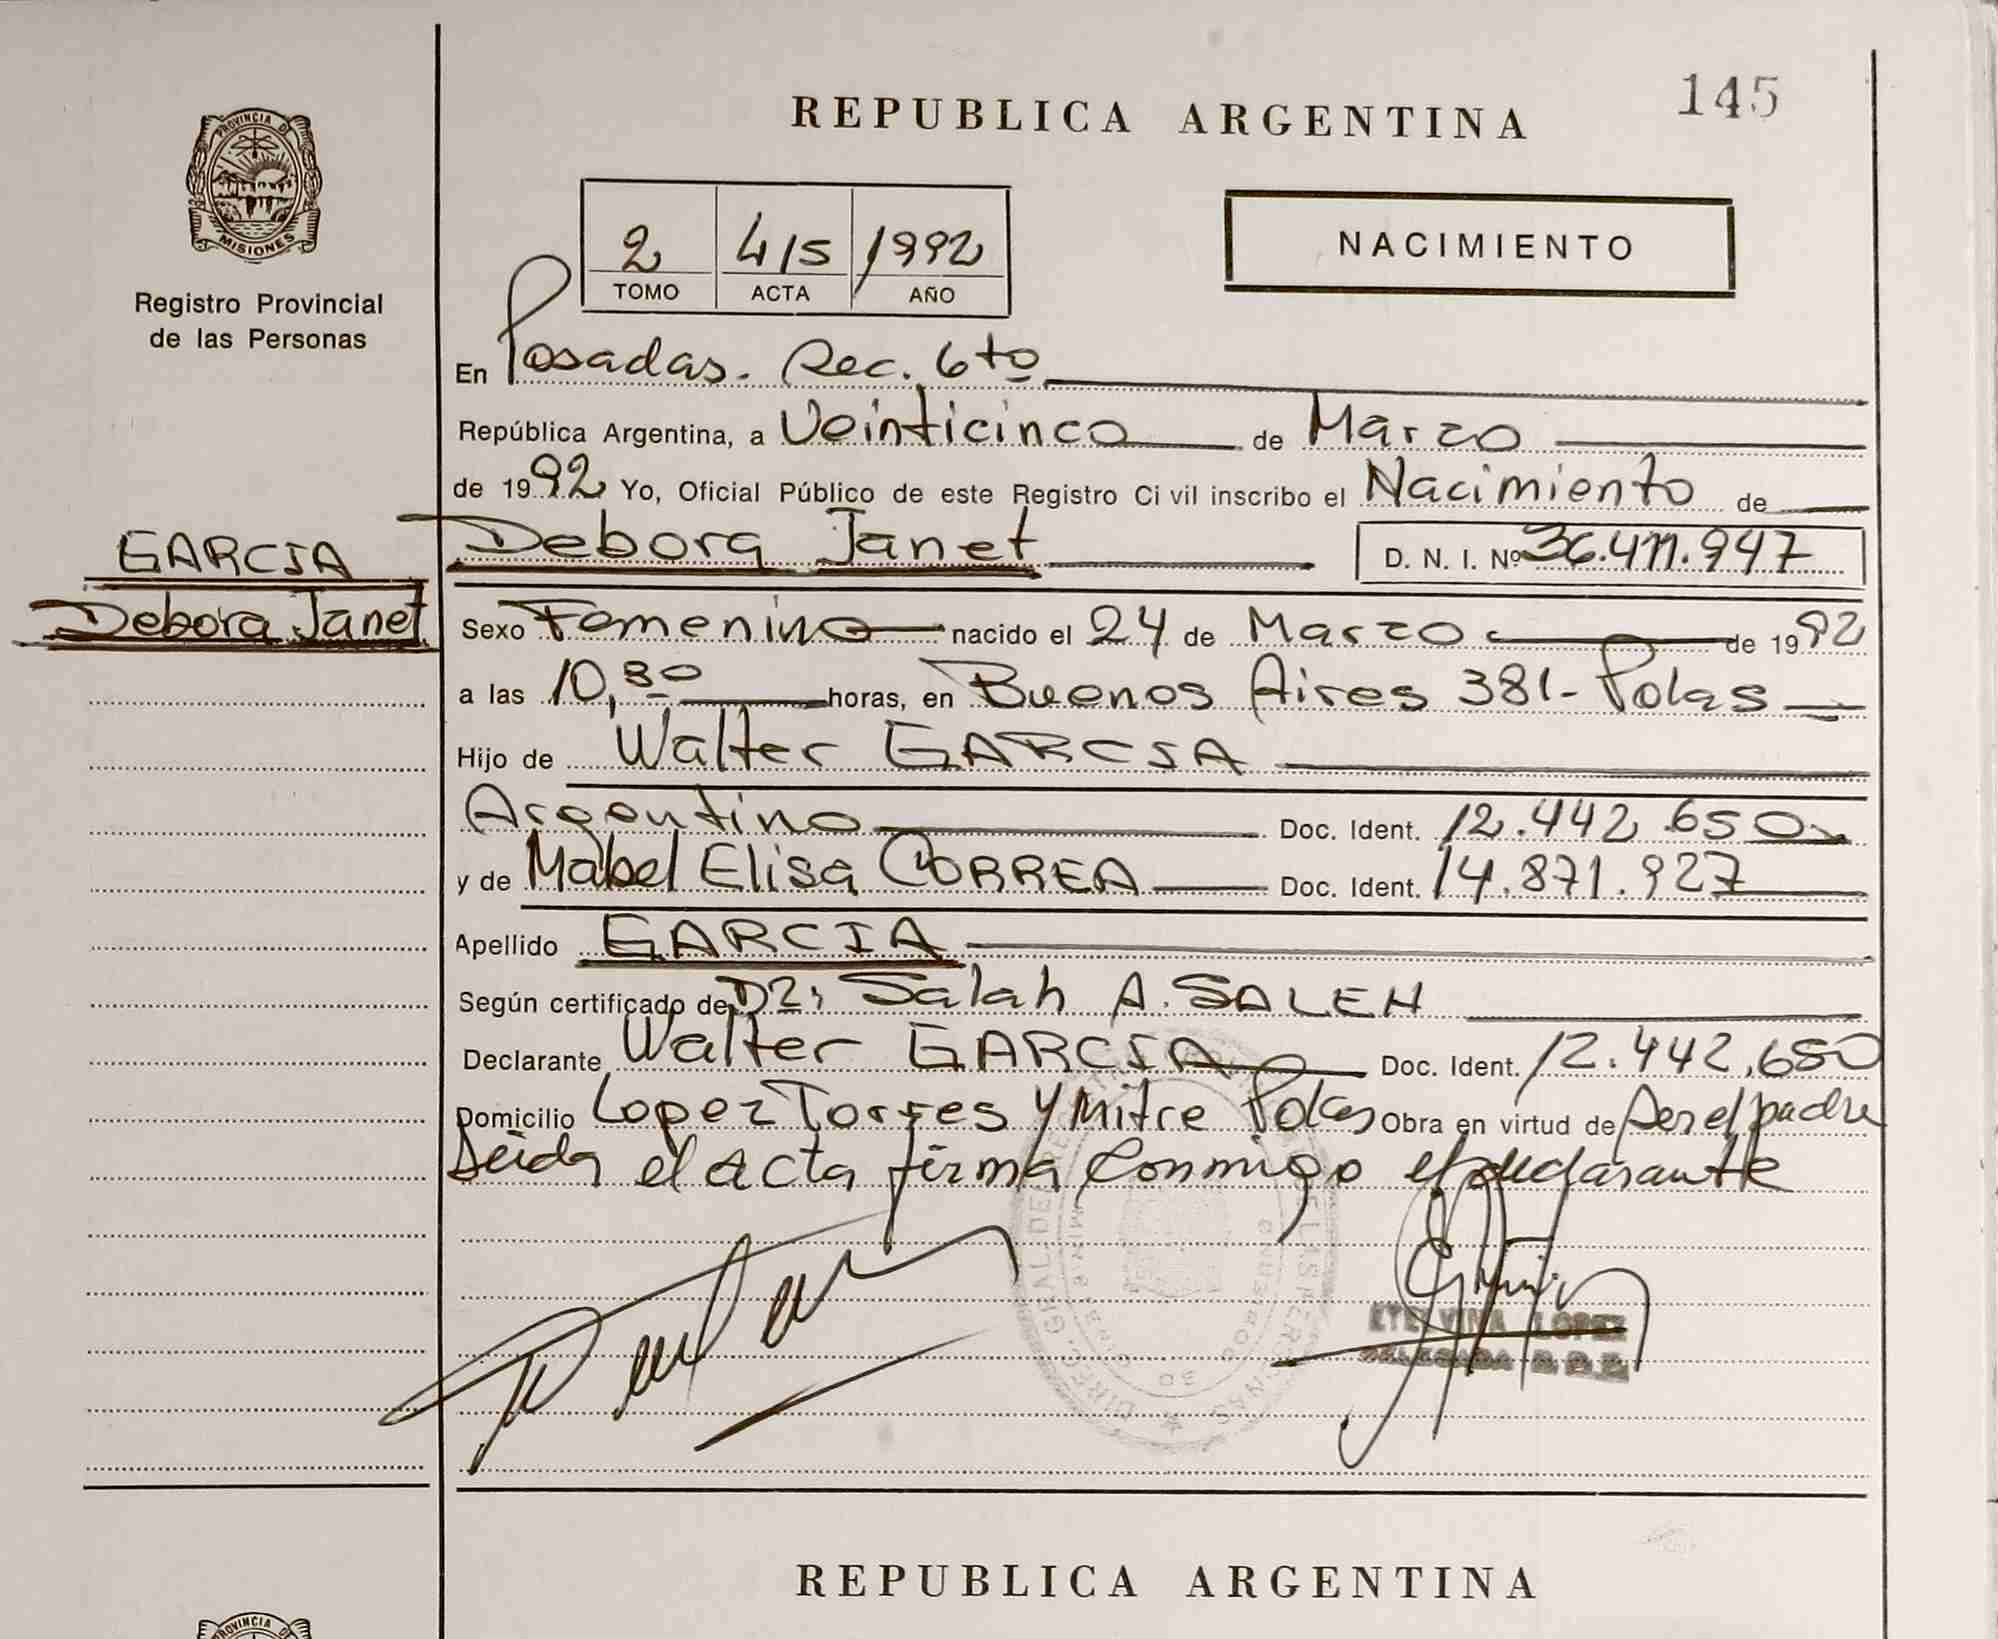 145
REPUBLICA ARGENTINA
PROVINCIA DE
MISIONES
Registro Provincial
de las Personas
2 415 1992
TOMO ACTA AÑO
NACIMIENTO
En Posadas. Sec. 6to
República Argentina, a Veinticinco de Marzo
de 1992 Yo, Oficial Público de este Registro Civil inscribo el Nacimiento de
GARCIA
Debora Janet
Debora Janet D. N. I. Nº 36.411.947
Sexo Femenino nacido el 24 de Marzo de 1992
a las 10,30 horas, en Buenos Aires 381- Pdas
Hijo de Walter GARCIA
Argentino Doc. Ident. 12.442.650
y de Mabel Elisa CORREA Doc. Ident. 14.871.927
Apellido GARCIA
Según certificado de Dr. Salah A. SALEH
Declarante Walter GARCIA Doc. Ident. 12.442.650
Domicilio Lopez Torres y Mitre Pdas Obra en virtud de ser el padre
Leida el acta firma conmigo el declarante
ETELVINA LOPEZ
DELEGADA R.P.P.
REPUBLICA ARGENTINA
PROVINCIA DE